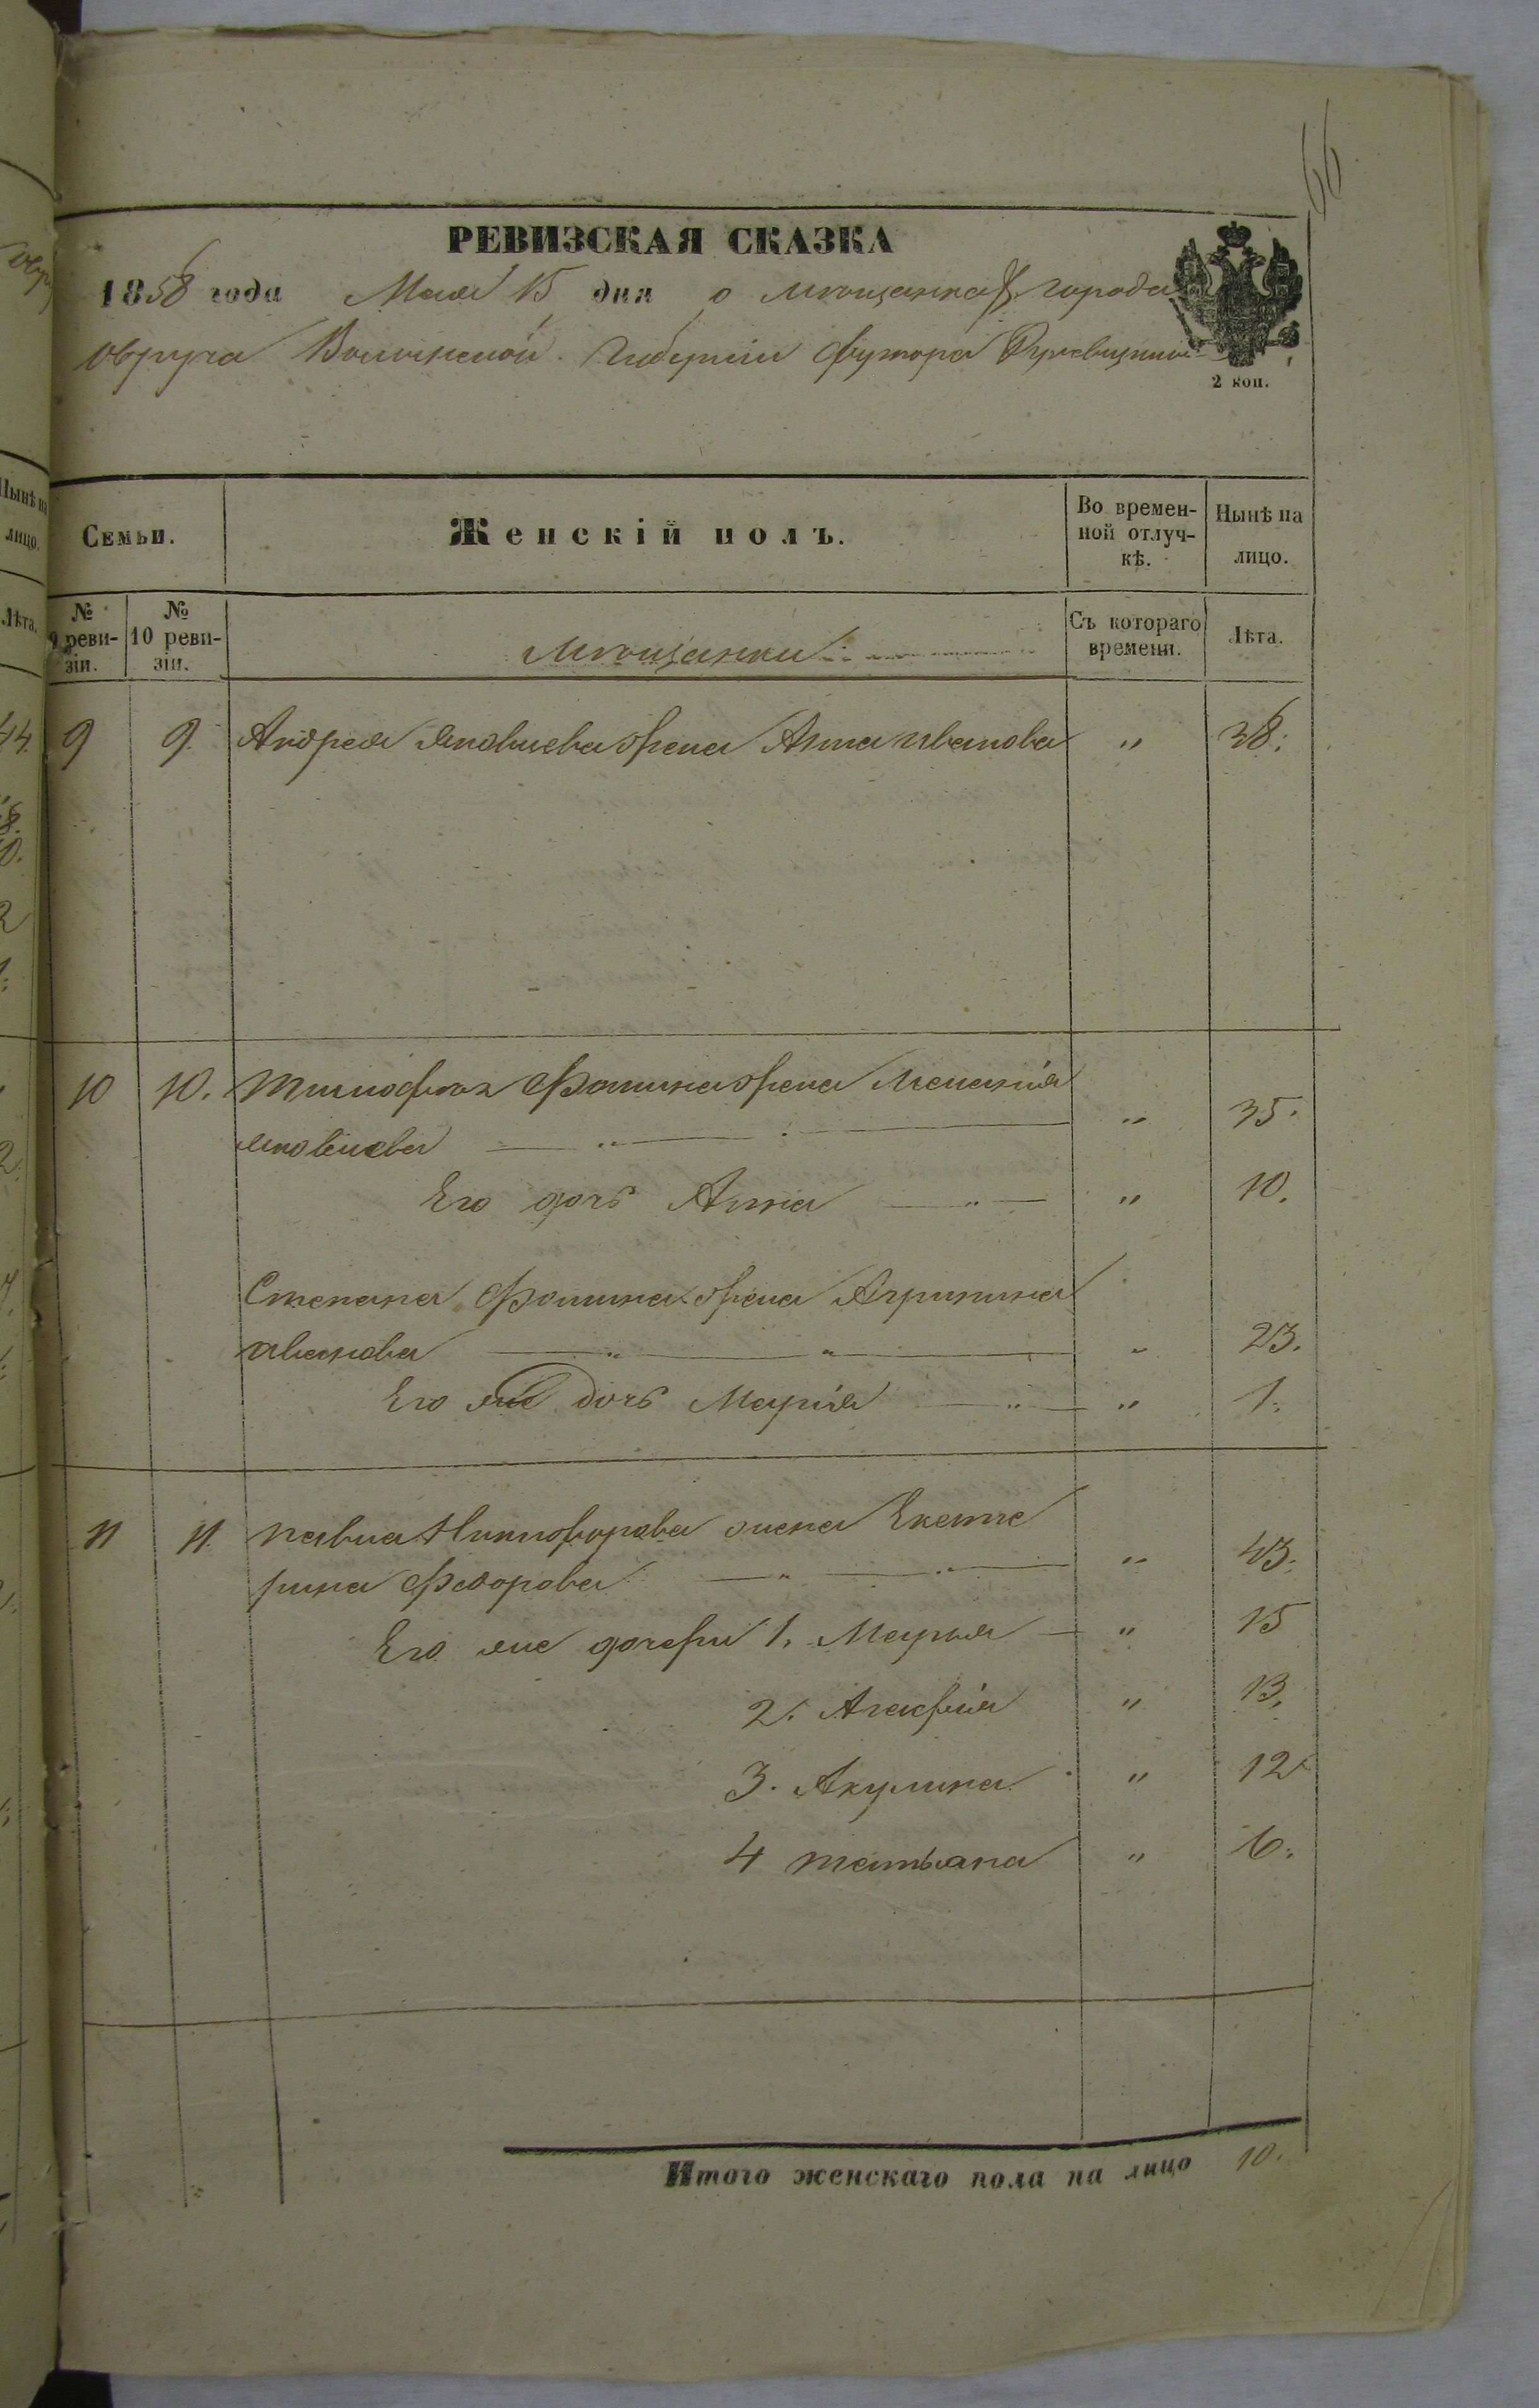 66
РЕВИЗСКАЯ СКАЗКА
1858 года Мая 15 дня о мѣщанках города
овруча Волынской Губерніи футора
2 коп.
Семьи.
Женскій полъ.
Во времен-
ной отлуч-
кѣ.
Нынѣ на
лицо.
№
9 реви-
зіи.
№
10 реви-
зіи.
мѣщанки
Съ котораго
времени.
Лѣта.
9 9. Андрея Яковлева жена Анна иванова " 38.
10 10. тимофея Фомина жена Меланія
яковлева " " " 35.
Его дочь Анна " " 10.
Степана Фомина жена Агрипина
иванова " " " 23.
Его же дочь Марія " " 1.
11 11. павла Никифорова жена Екате
рина Федорова " " " 43.
Его же дочери 1. Марья " 15
2. Агафія " 13.
3. Акулина " 12
4 татьяна " 6.
Итого женскаго пола на лицо 10.